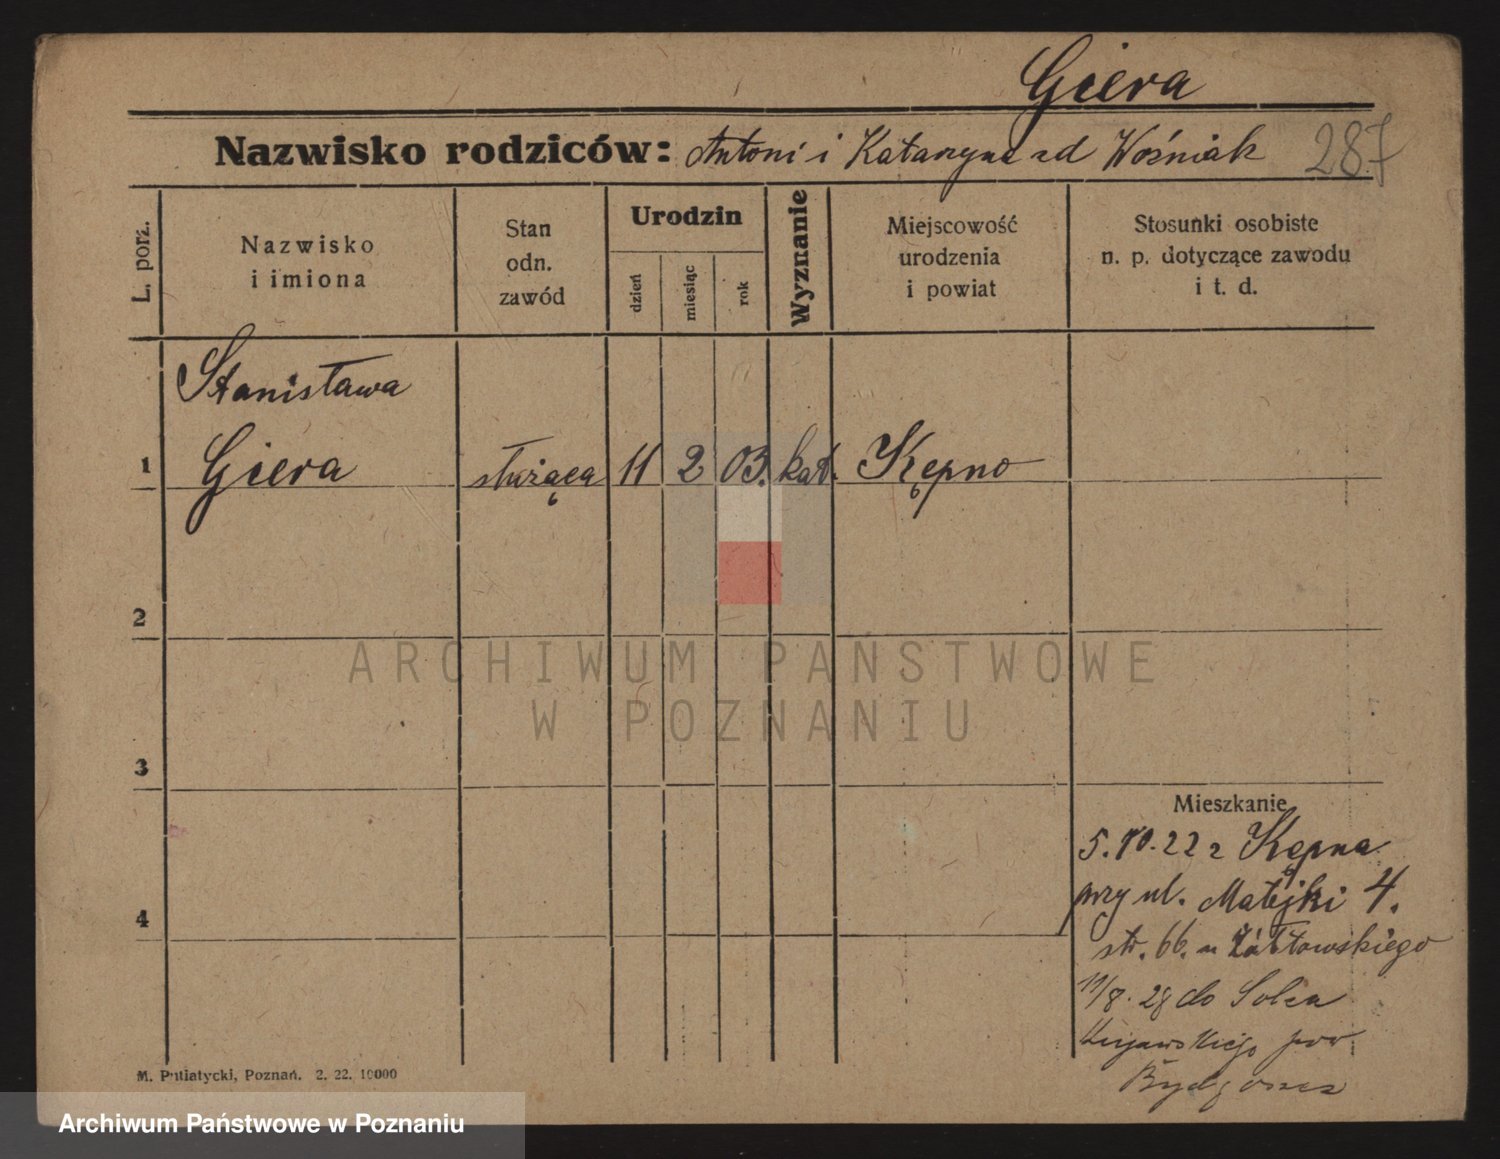 Giera
Nazwisko rodziców: Antoni i Katarzyna zd Woźniak 287
L. porz.
Nazwisko
i imiona
Stan
odn.
zawód
Urodzin
dzień
miesiąc
rok
Wyznanie
Miejscowość
urodzenia
i powiat
Stosunki osobiste
n. p. dotyczące zawodu
i t. d.
Stanisława
1 Giera służąca 11 2 03. kat. Kępno
2
ARCHIWUM PAŃSTWOWE
W POZNANIU
3
Mieszkanie
5.10.22 z Kępna
przy ul. Matejki 4.
4
str. 66. u Żółtowskiego
11/8. 28 do Solca
Kujawskiego pow
Bydgoszcz
M. Putiatycki, Poznań. 2. 22. 10000
Archiwum Państwowe w Poznaniu